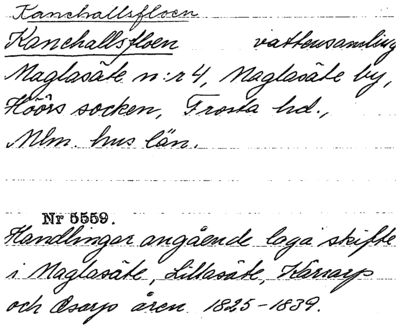 Kanehallsfloen
Kanehallsfloen vattensamling
Maglasäte n:r 4, Maglasäte by,
Höörs socken, Frosta hd.,
Mlm. hus län.
Nr 5559.
Handlingar angående laga skifte
i Maglasäte, Lillasäte, Karrarp
och Osarp åren 1825-1839.